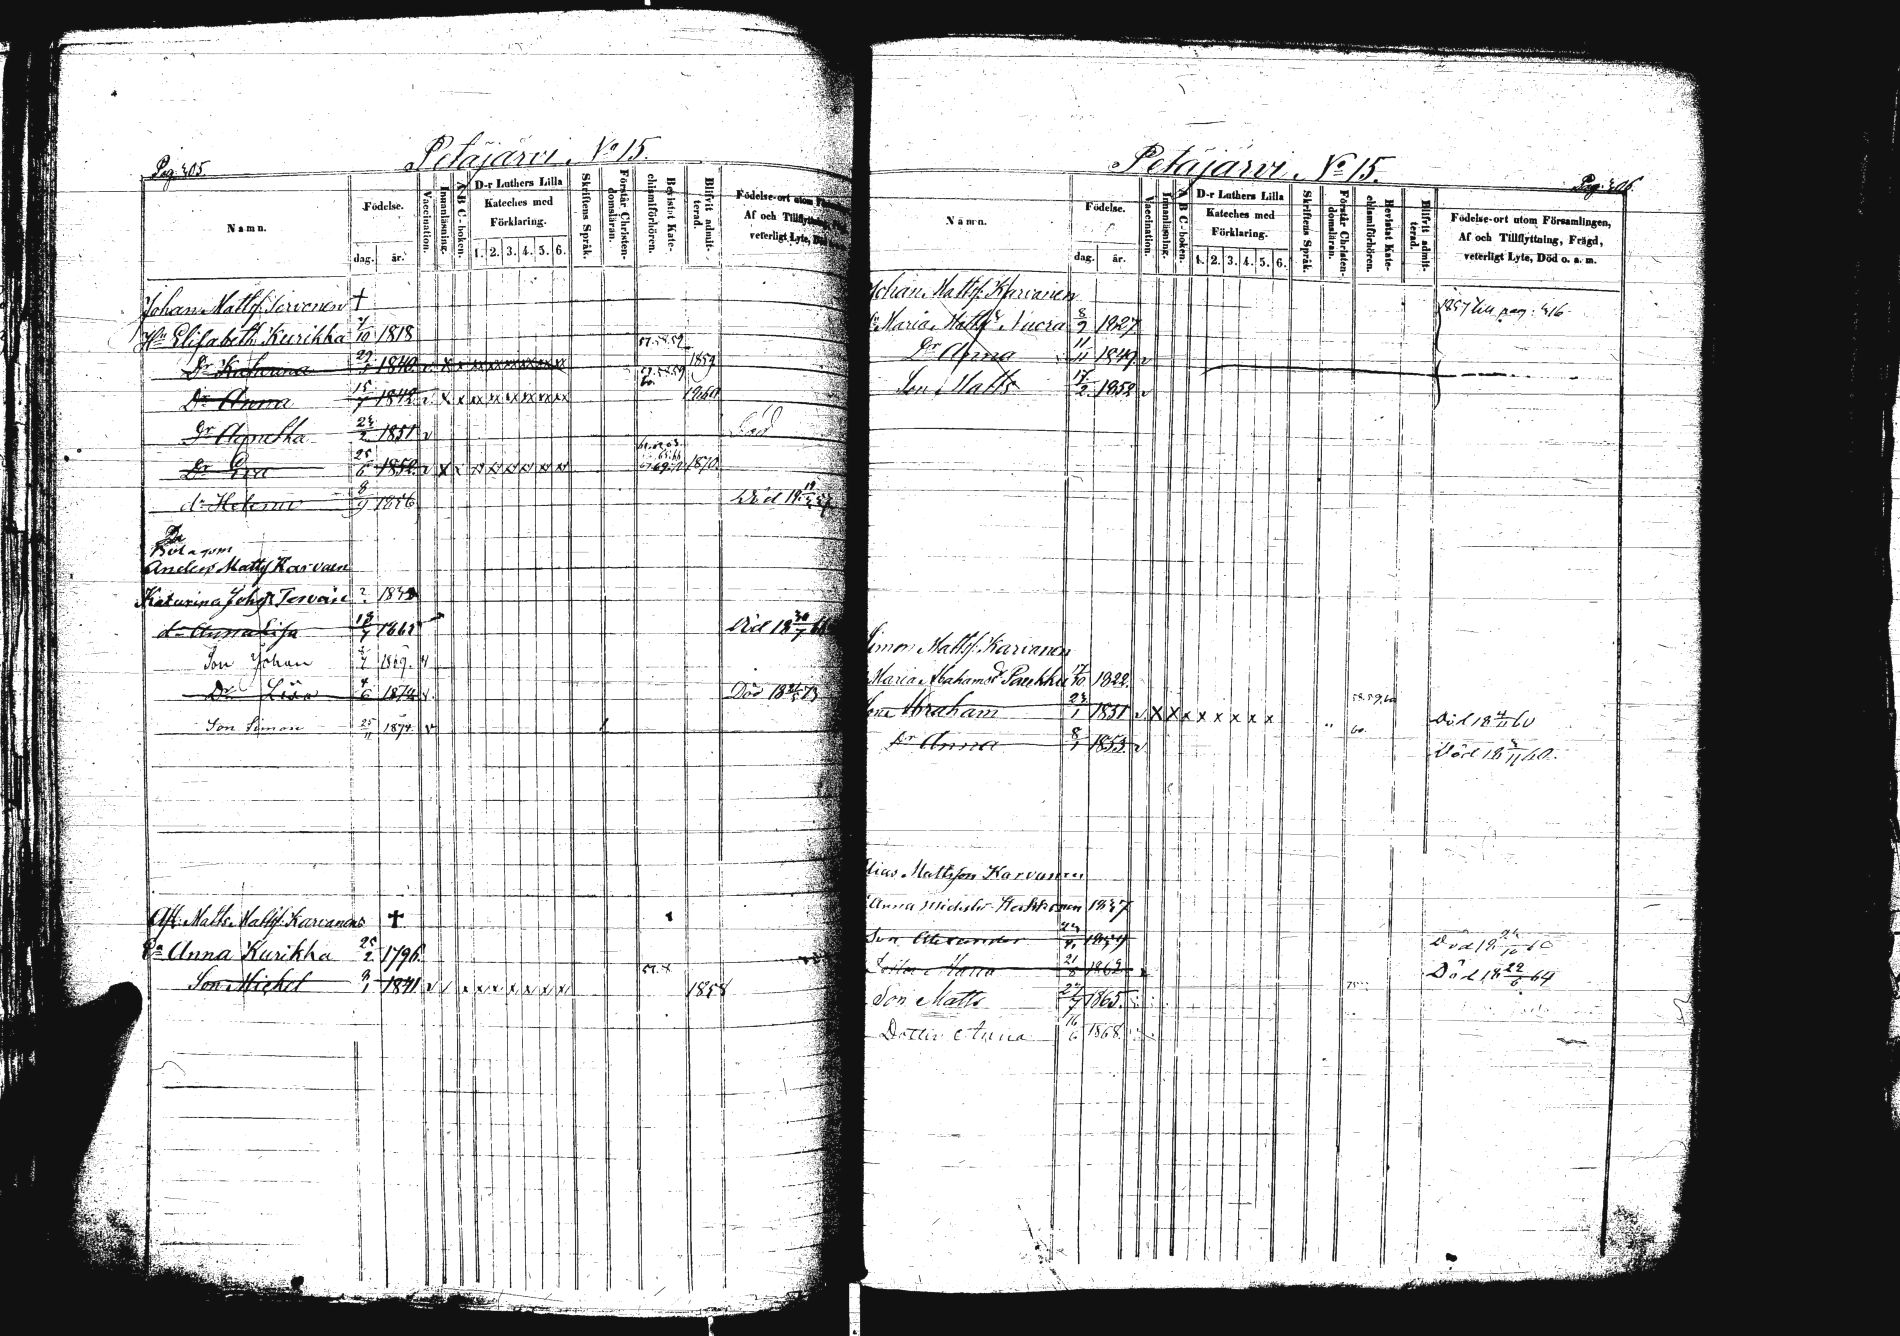 Pag. 405
Petäjärvi No 15.
Namn.
Födelse.
dag. år.
Vaccination.
Innanläsning.
ABC-boken.
D-r Luthers Lilla
Kateches med
Förklaring.
1. 2. 3. 4. 5. 6.
Skriftens Språk.
Förstår Christen-
domsläran.
Bevistat Kate-
chismiförhören.
Blifvit admit-
terad.
Födelse-ort utom
Af och Tillflyttning,
veterligt Lyte, Död
Johan Mattss. Torvonen †
Hu Elisabeth Kurikka 10 1818
57.58.59
Dr Katarina 29/1 1840 v x x x x x x x x 1859
57.58.59
60.
Dr Anna 15/7 1842 v x x x x x x x x 1860
Dr Agnetha 23/2 1851 v Död
Dr Eva 25/6 1852 v x x x x x x x 1870
dr Helena 8/9 1856 Död 18 19/ 57
Anders Matts Karvaen
Katarina Johs Tervain ? 184
dr Anna Lisa 13/7 1865 Död 18 30/7 6
Son Johan 7 1869
Dr Lisa 4/6 1872 v Död 18 73
Son Simon 25/11 1874 v
Afl. Matts Mattss. Karvanens †
Ea Anna Kurikka 25/2 1796.
57.8
Son Michel 9/1 1841 v x x x x x x x 1858
Petäjärvi No 15.
Pag. 406
Namn.
Födelse.
dag. år.
Vaccination.
Innanläsning.
ABC-boken.
D-r Luthers Lilla
Kateches med
Förklaring.
1. 2. 3. 4. 5. 6.
Skriftens Språk.
Förstår Christen-
domsläran.
Bevistat Kate-
chismiförhören.
Blifvit admit-
terad.
Födelse-ort utom Församlingen,
Af och Tillflyttning, Frägd,
veterligt Lyte, Död o. a. m.
Johan Mattss. Karvanen
1857 till pag. 416
Maria Mattsdr Nucra 8/9 1827
Dr Anna 11/11 1849 v
Son Matts 17/2 1852 v
Simon Mattss. Karvanen
Maria Abrahamsdr Paukku 17/10 1822.
58.59.60
Son Abraham 23/1 1851 v x x x x x x x x " 60. Död 18 4/11 60
Dr Anna 8/1 1853 v Död 18 3/11 60.
Elias Mattsson Karvanen
Anna Michelsdr 1837
Son Alexander 1859 Död 18 24/10 60
Dotter Maria 21/8 1862 v Död 18 22/6 64
Son Matts 24/7 1865. 75
Dotter Anna 16/6 1868.